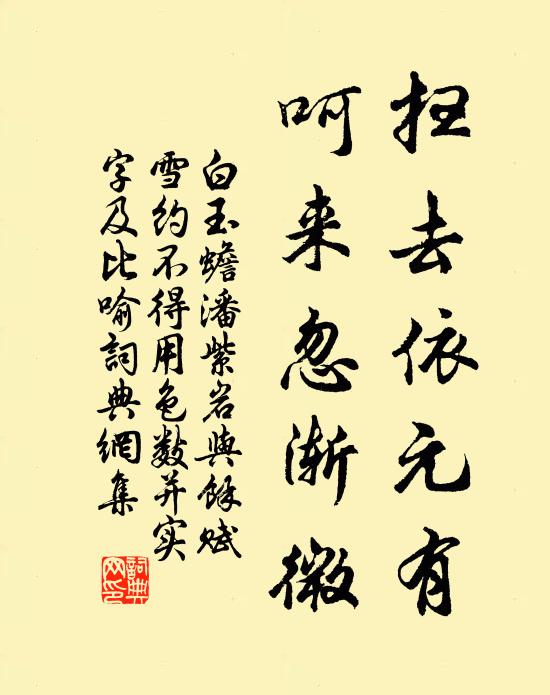 扫去依元有
呵来忽渐微
白玉蟾潘紫岩與餘赋
雪约不得用色数并实
字及比喻詞典網集
詞典網印